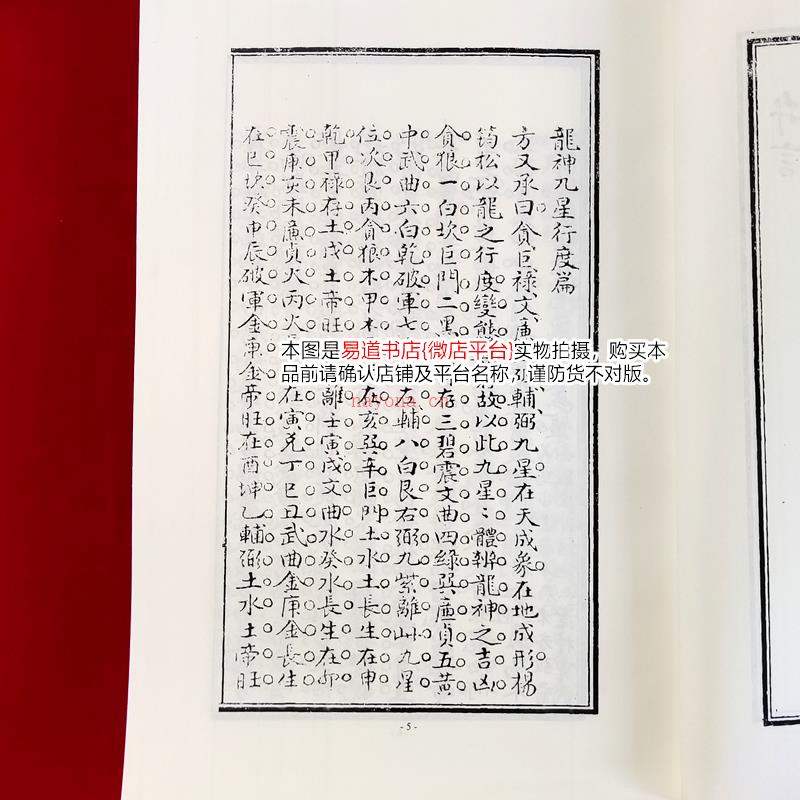 龍神九星行度篇
方又承曰貪巨祿文廉輔弼九星在天成象在地成形楊
筠松以龍之行度變態故以此九星〻體辨龍神之吉凶
貪狼一白坎巨門二黑存三碧震文曲四綠巽廉貞五黃
中武曲六白乾破軍七左輔八白艮右弼九紫離此九星
位次艮丙貪狼木甲木在亥巽辛巨門土水土長生在申
乾甲祿存土戊土帝旺離壬寅戌文曲水癸水長生在卯
震庚亥未廉貞火丙火在寅兌丁巳丑武曲金庚金長生
在巳坎癸申辰破軍金庚金帝旺在酉坤乙輔弼土水土帝旺
- 5 -
本图是易道书店{微店平台}实物拍摄，购买本
品前请确认店铺及平台名称，谨防货不对版。